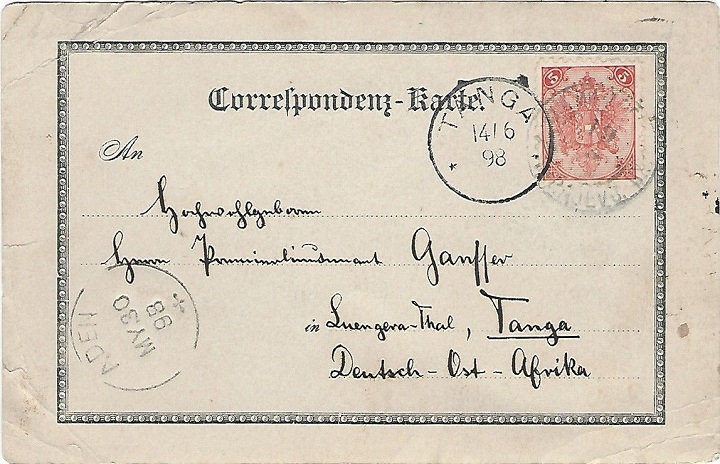 Correspondenz-Karte.
TANGA
14/6
98
5 5
An
Hochwohlgeboren
Herrn Premierlieutenant Gansser
in Luengera-Thal, Tanga
Deutsch-Ost-Afrika
ADEN
MY 30
98